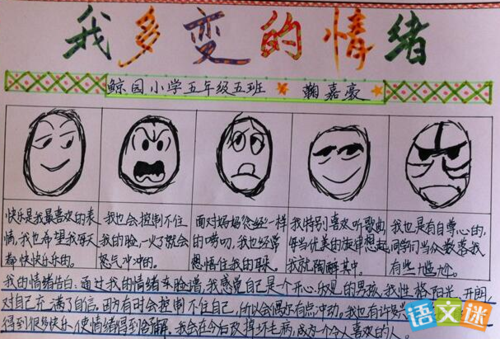 我多变的情绪
鲸园小学五年级五班 鞠嘉豪
快乐是我最喜欢的表
情,我也希望我每天
都快快乐乐的。
我也会控制不住
我的脸,一火了就会
怒气冲冲的。
面对妈妈念经一样
的唠叨,我也经常
想捂住我的耳朵。
我特别喜欢听歌曲,
每当优美的旋律想起
我就陶醉其中。
我也是有自尊心的,
同学们当众数落我
有些尴尬。
我的情绪告白:通过我的情绪本脸谱,我感觉自己是个开心、乐观的男孩,我性格阳光、开朗
对自己充满了自信。因为有时会控制不住自己,所以会偶尔有点冲动,我也有许多
得到很多快乐,使情绪得到缓解,我会在今后改掉坏毛病,成为个令人喜欢的人。
语文迷